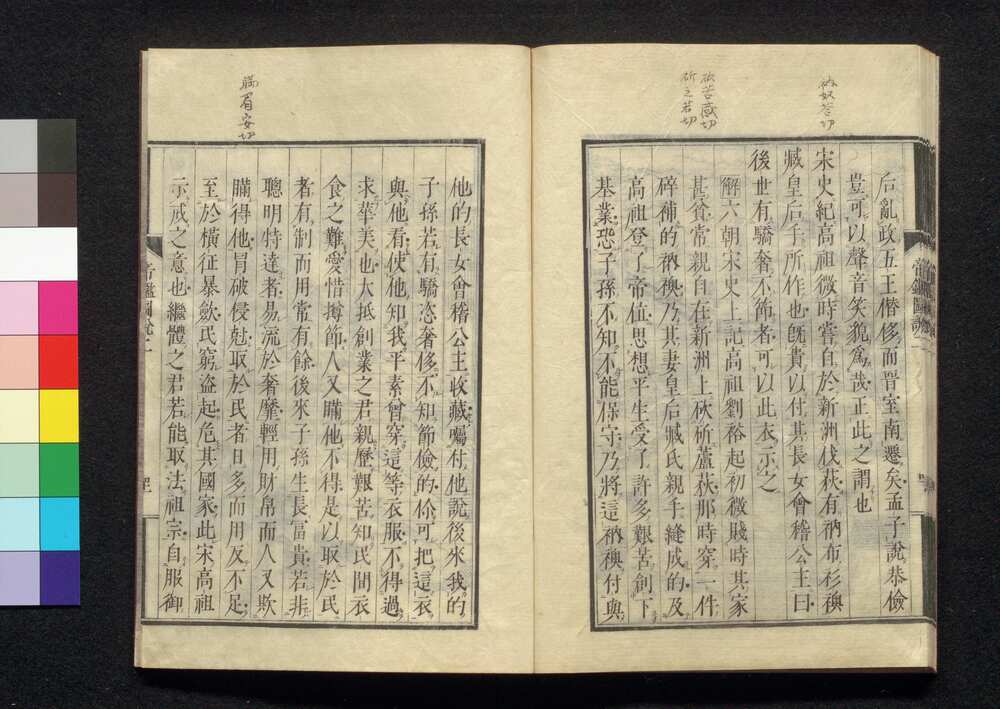 衲奴荅切
砍苦感切
斫之若切
后亂政五王僭侈而晉室南遷矣孟子說恭儉
豈可以聲音笑貌爲哉正此之謂也
宋史紀高祖微時嘗自於新洲伐荻有衲布衫襖
臧皇后手所作也旣貴以付其長女會稽公主曰
後世有驕奢不節者可以此衣示之
解六朝宋史上記高祖劉裕起初微賤時其家
甚貧常親自在新洲上砍斫蘆荻那時穿一件
碎補的衲襖乃其妻皇后臧氏親手縫成的及
高祖登了帝位思想平生受了許多艱苦創下
基業恐子孫不知不能保守乃將這衲襖付與
瞞眉安切
他的長女會稽公主收藏囑付他說後來我的
子孫若有驕恣奢侈不知節儉的你可把這衣
與他看使他知我平素曾穿這等衣服不得過
求華美也大抵創業之君親歷艱苦知民間衣
食之難愛惜撙節人又瞞他不得是以取於民
者有制而用常有餘後來子孫生長富貴若非
聰明特達者易流於奢靡輕用財帛而人又欺
瞞得他冒破侵尅取於民者日多而用反不足
至於橫征暴歛民窮盜起危其國家此宋高祖
示戒之意也繼體之君若能取法祖宗自服御